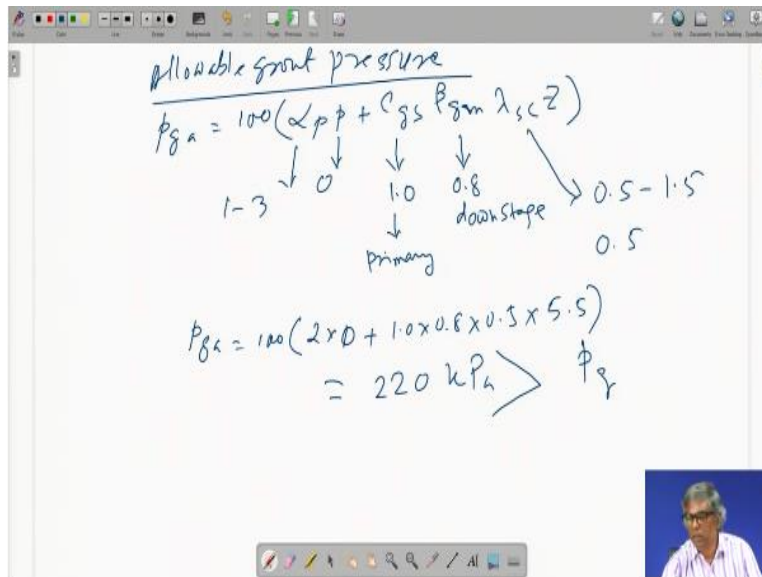 Allowable grout pressure
Pga = 100 (αp p + Cgs βgm λsc Z)
1-3
0
1.0
0.8
0.5 - 1.5
downstage
0.5
primary
Pga = 100 (2×0 + 1.0×0.8×0.5×5.5)
= 220 kPa > pg